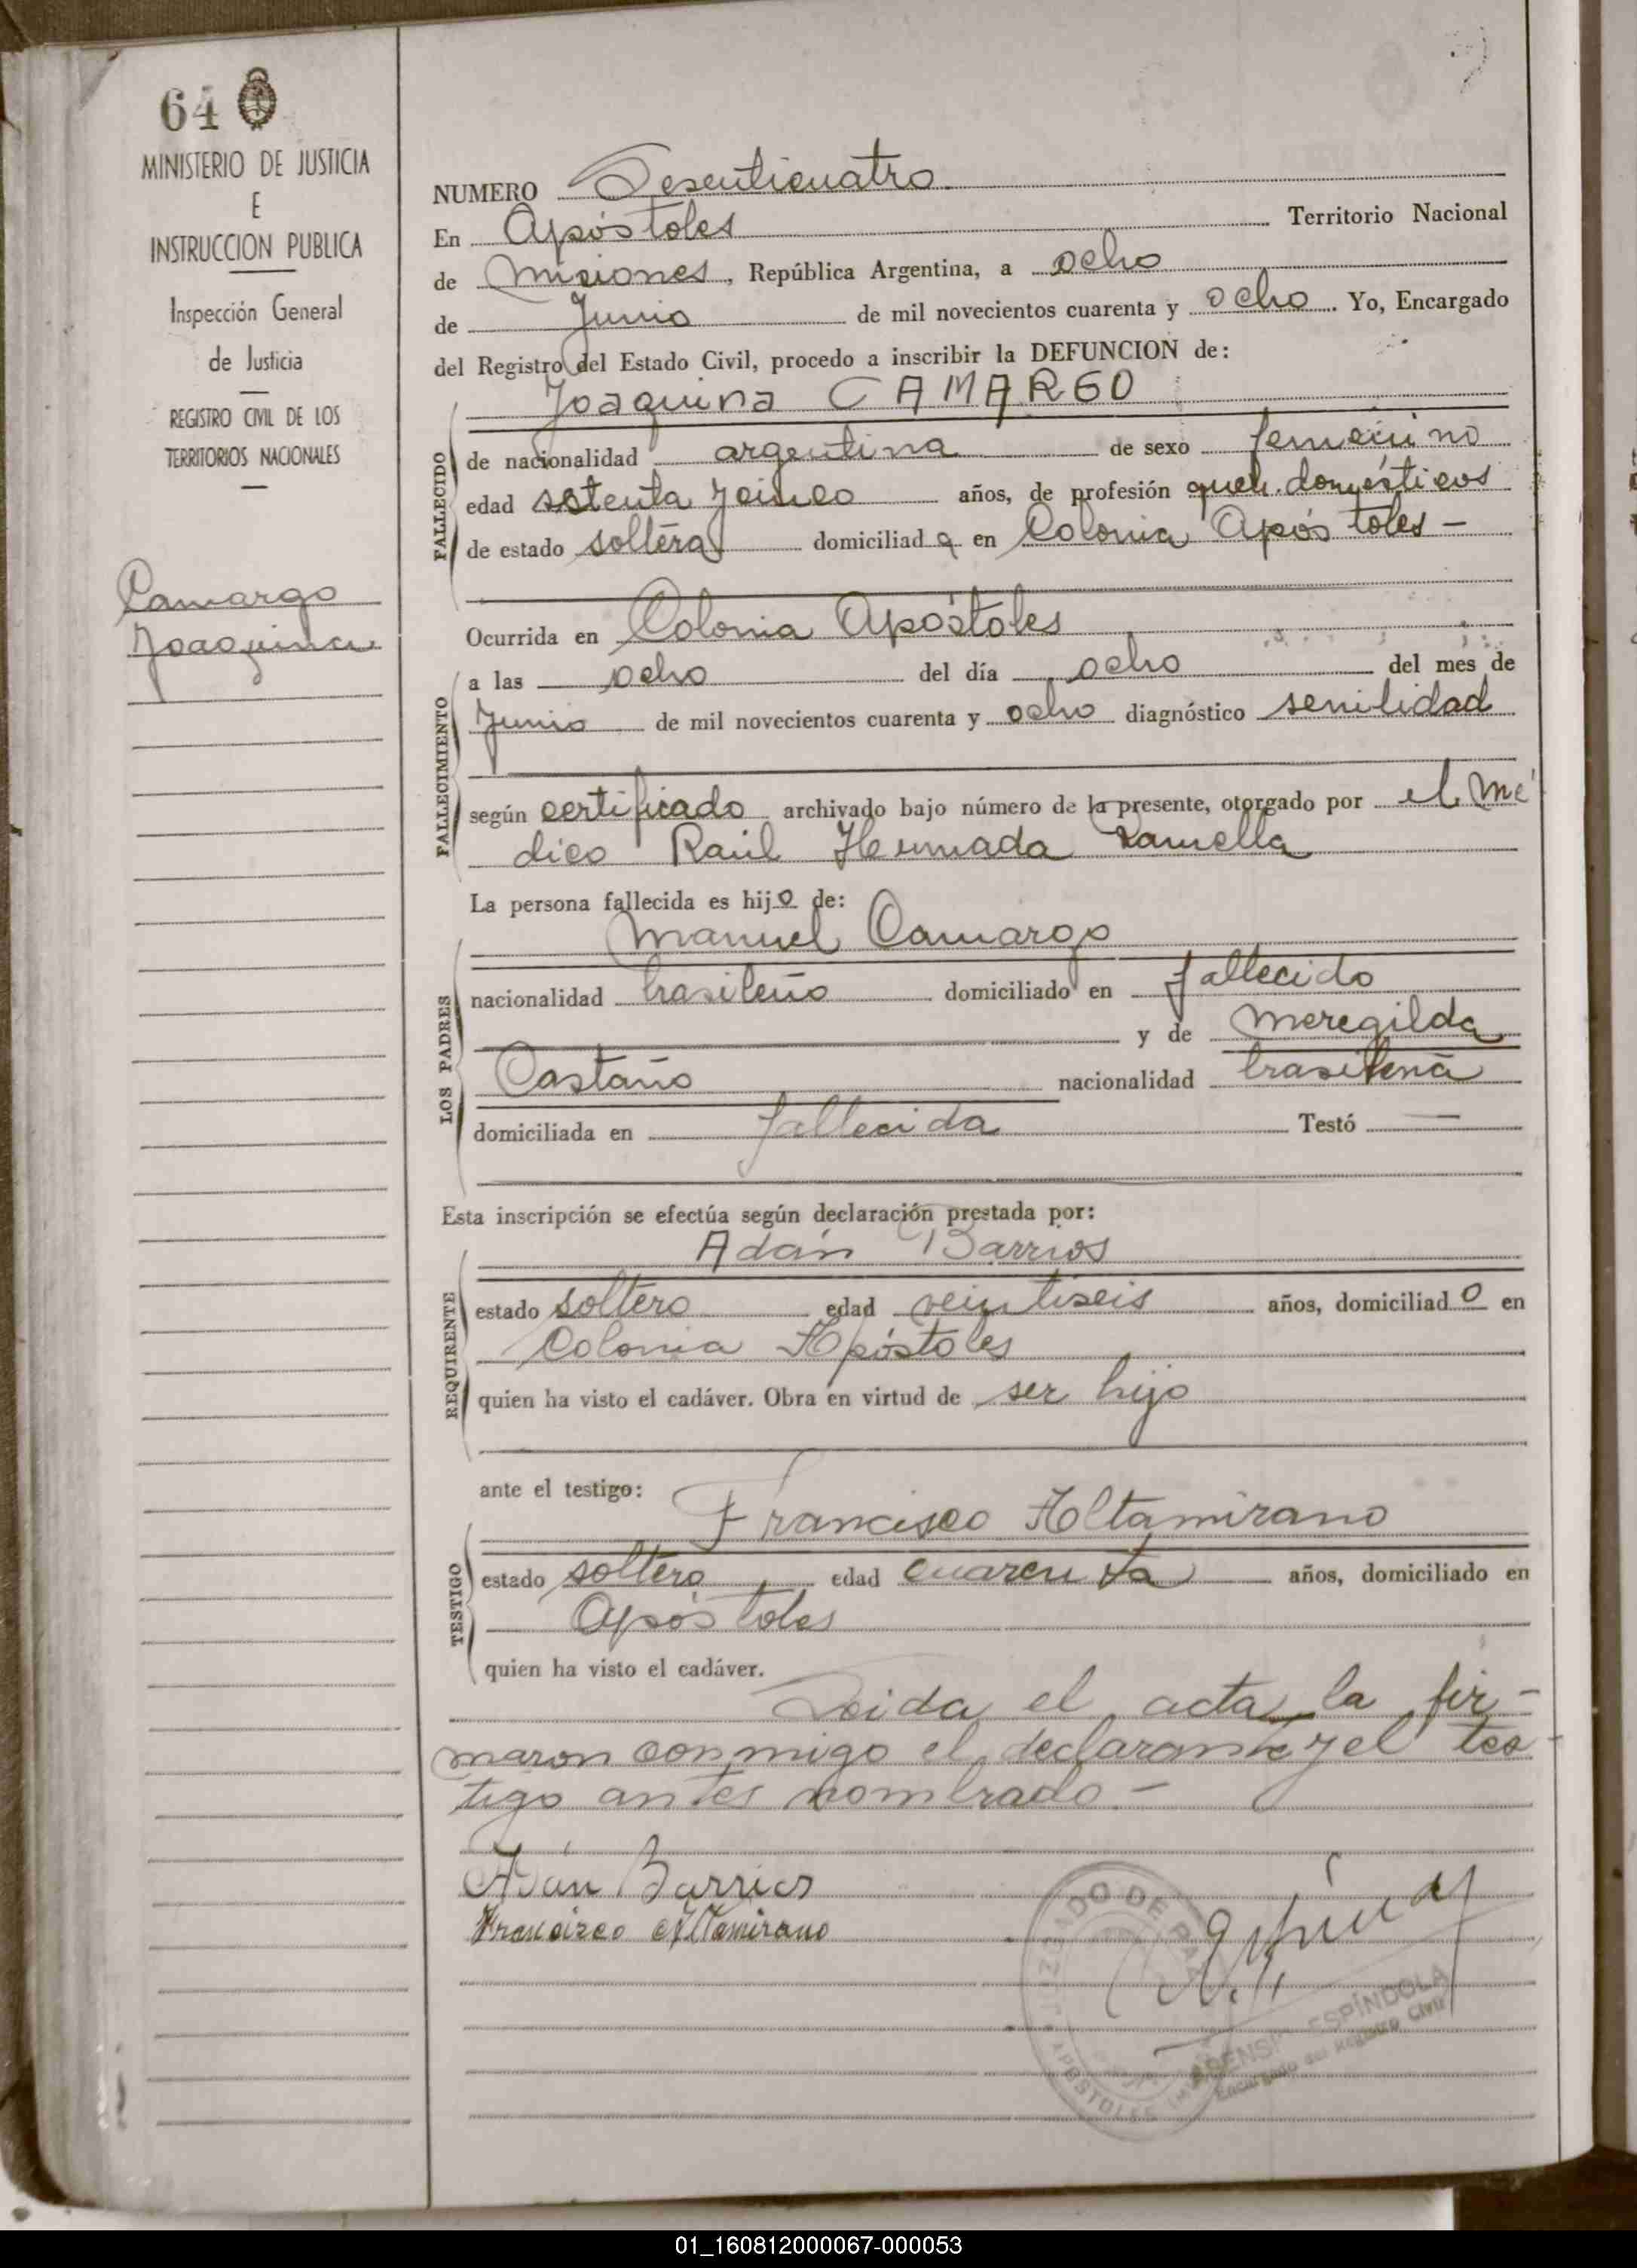 64
MINISTERIO DE JUSTICIA
E
INSTRUCCION PUBLICA
Inspección General
de Justicia
REGISTRO CIVIL DE LOS
TERRITORIOS NACIONALES
Camargo
Joaquina
NUMERO Sesenticuatro
En Apóstoles Territorio Nacional
de Misiones, República Argentina, a ocho
de Junio de mil novecientos cuarenta y ocho. Yo, Encargado
del Registro del Estado Civil, procedo a inscribir la DEFUNCION de:
Joaquina CAMARGO
FALLECIDO
de nacionalidad argentina de sexo femenino
edad setenta y cinco años, de profesión queh. domésticos
de estado soltera domiciliad a en Colonia Apóstoles -
Ocurrida en Colonia Apóstoles
FALLECIMIENTO
a las ocho del día ocho del mes de
Junio de mil novecientos cuarenta y ocho diagnóstico senilidad
según certificado archivado bajo número de la presente, otorgado por el mé
dico Raúl
La persona fallecida es hijo de:
LOS PADRES
Manuel Camargo
nacionalidad brasileño domiciliado en fallecido
y de Meregilda
Castaño nacionalidad brasileña
domiciliada en fallecida Testó —
Esta inscripción se efectúa según declaración prestada por:
REQUIRENTE
Adán Barrios
estado soltero edad veintiseis años, domiciliado en
Colonia Apóstoles
quien ha visto el cadáver. Obra en virtud de ser hijo
ante el testigo:
TESTIGO
Francisco Altamirano
estado soltero edad cuarenta años, domiciliado en
Apóstoles
quien ha visto el cadáver.
Leida el acta la fir-
maron conmigo el declarante y el tes-
tigo antes nombrado -
Adán Barrios
Francisco Altamirano
JUZGADO DE PAZ
APOSTOLES
ESPÍNDOLA
Encargado del Registro Civil
01_160812000067-000053